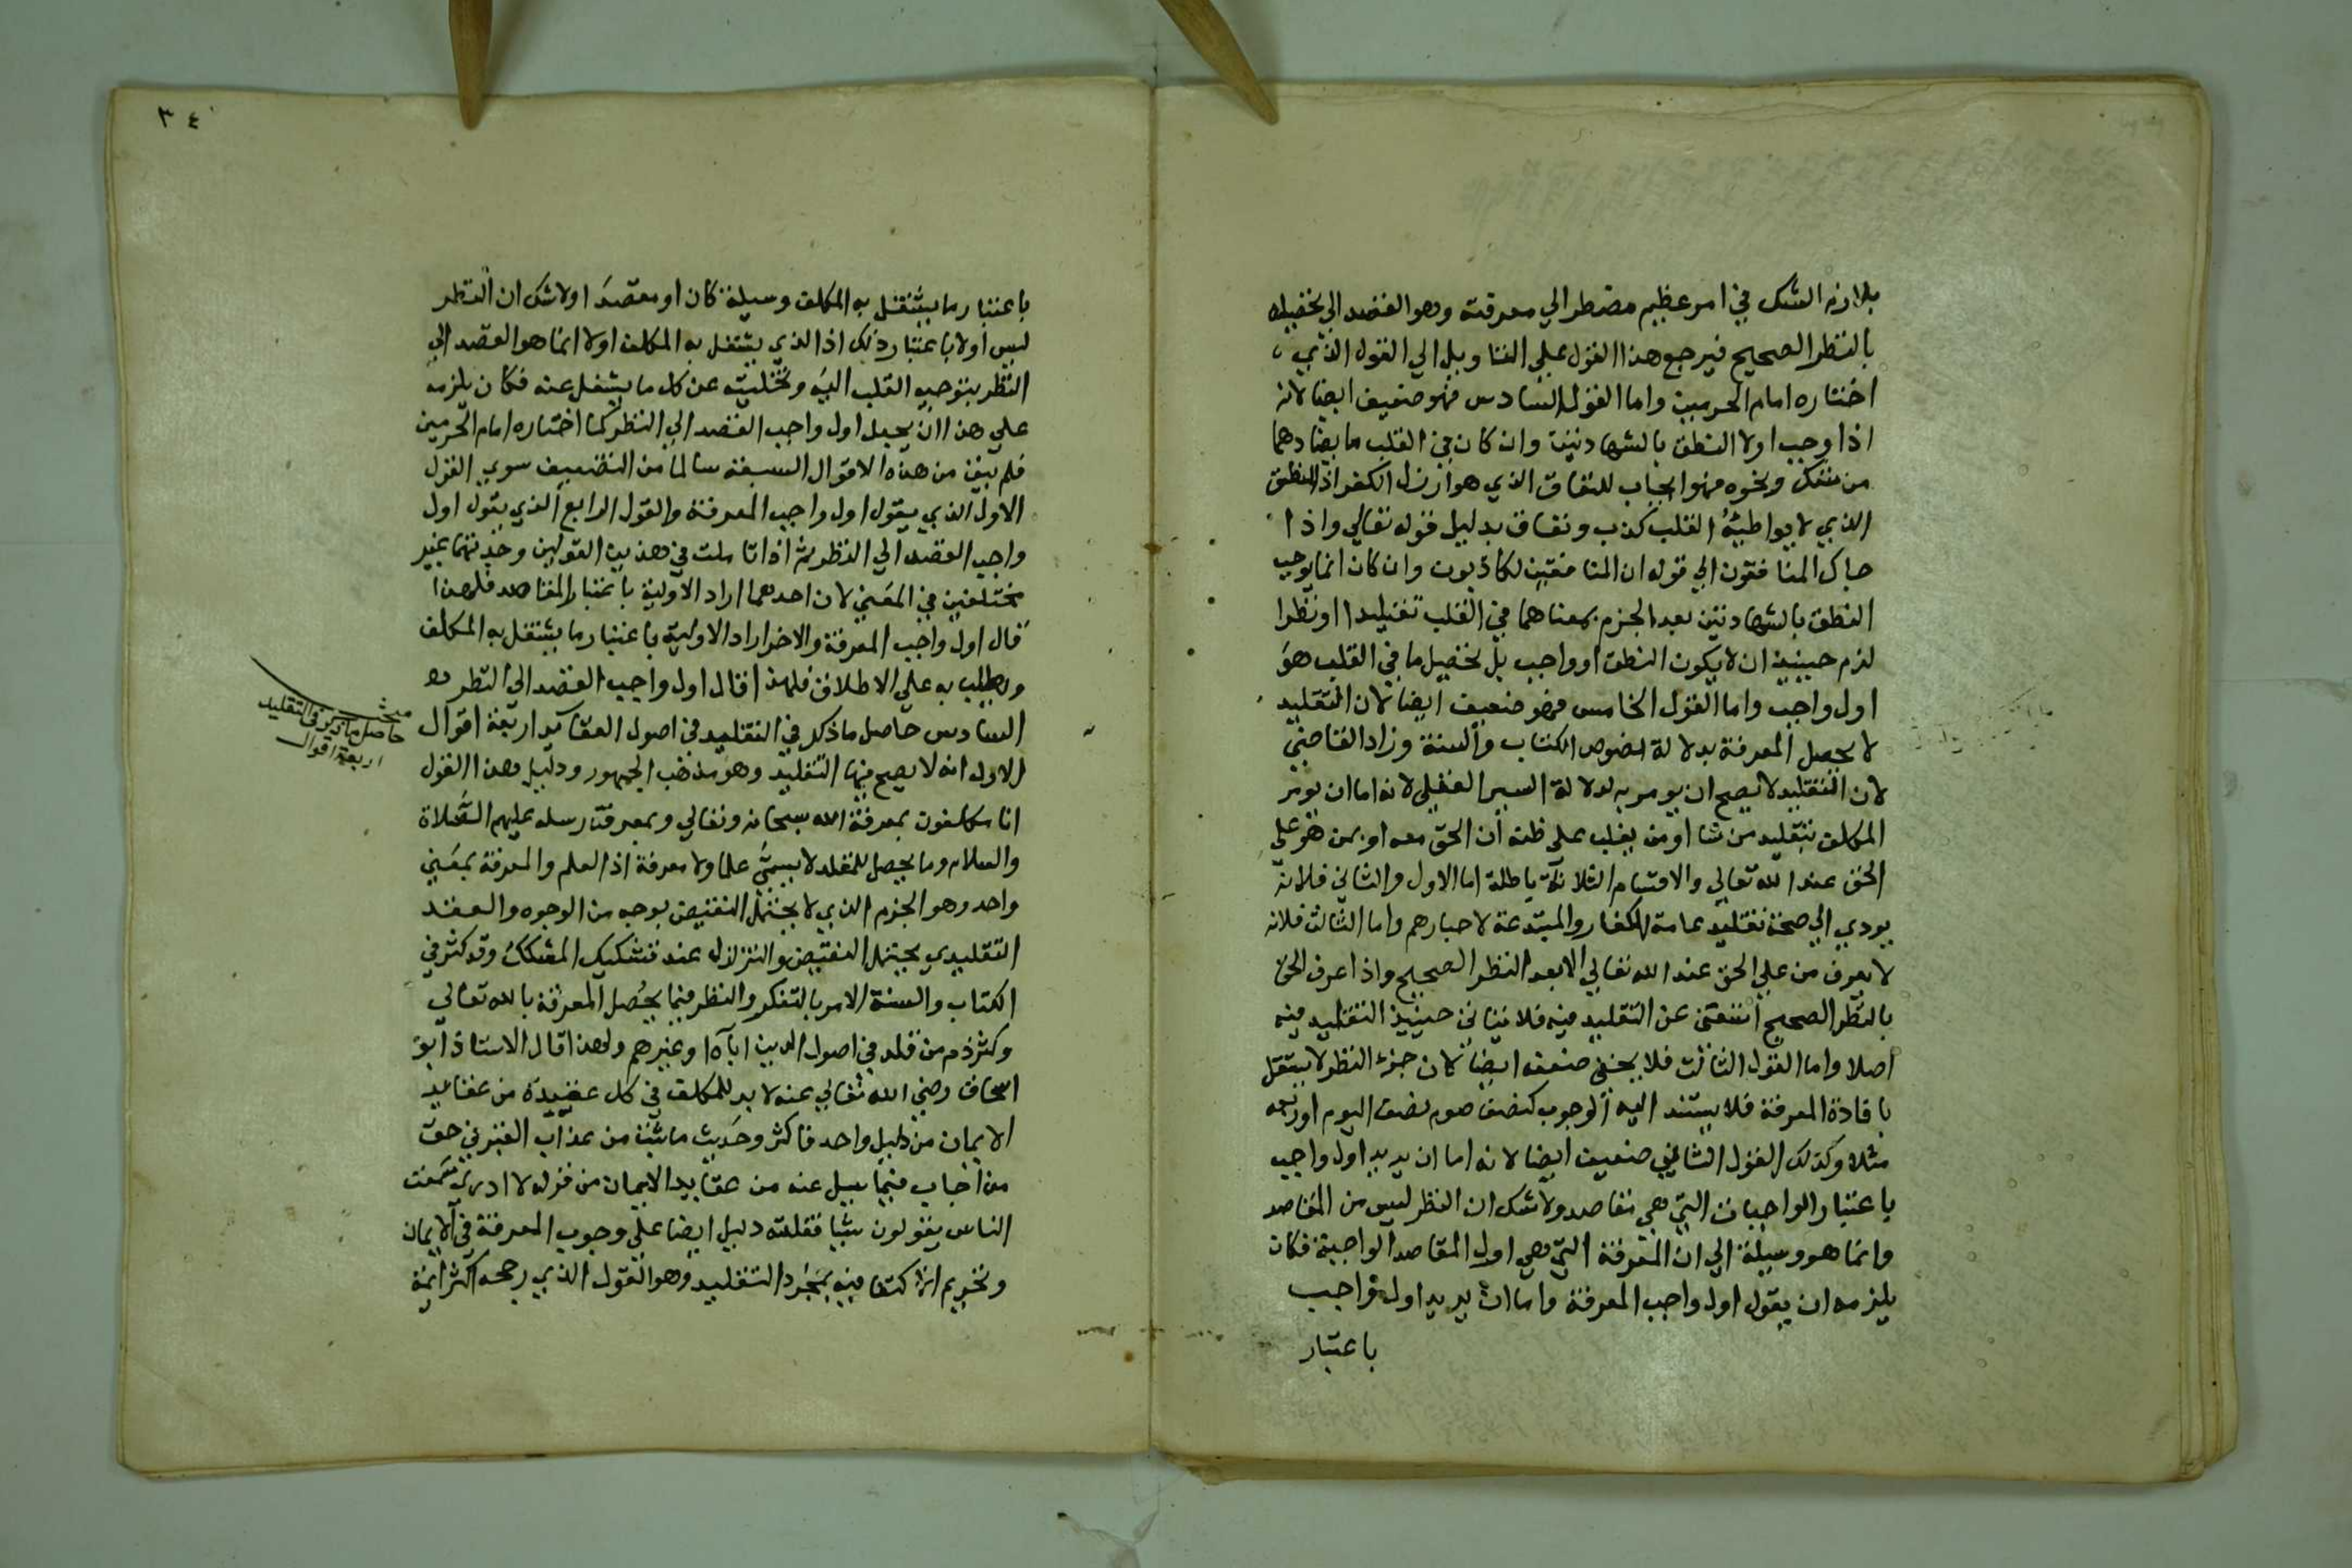 بلازمه الشك في امر عظيم مضطر الي معرفته وهو القصد الي تحصيله
بالنظر الصحيح فيرجع هذا القول علي التاويل الي القول الذي
اختاره امام الحرمين واما القول السادس فهو ضعيف ايضا لانه
اذا وجب اولا النطق بالشهادتين وان كان في القلب ما يضادهما
من شك ونحوه فهو ايجاب للنفاق الذي هو ارذل الكفر اذ النطق
الذي لا يواطيه القلب كذب ونفاق بدليل قوله تعالي واذا
جاك المنافقون الي قوله ان المنافقين لكاذبون وان كان انما يوجب
النطق بالشهادتين بعد الجزم بمعناهما في القلب تقليدا او نظرا
لزم حينيذ ان لا يكون النطق اول واجب بل تحصيل ما في القلب هو
اول واجب واما القول الخامس فهو ضعيف ايضا لان التقليد
لا يحصل المعرفة بدلالة نصوص الكتاب والسنة وزاد القاضي
لان التقليد لا يصح ان يومر به لدلالة السبر العقلي لانه اما ان يومر
المكلف بتقليد من شا او من يغلب علي ظنه ان الحق معه او بمن هو علي
الحق عند الله تعالي والاقسام الثلاثة باطلة اما الاول والثاني فلانه
يودي الي صحة تقليد عامة الكفار والمبتدعة لاحبارهم واما الثالث فلانه
لا يعرف من علي الحق عند الله تعالي الا بعد النظر الصحيح واذا عرف الحق
بالنظر الصحيح استغني عن التقليد فيه فلا يتاتي حينيذ التقليد فيه
اصلا واما القول الثالث فلا يخفي ضعفه ايضا لان جزء النظر لا يستقل
بافادة المعرفة فلا يستند اليه الوجوب كنصف صوم نصف اليوم او ربعه
مثلا وكذلك القول الثاني ضعيف ايضا لانه اما ان يريد اول واجب
باعتبار الواجبات التي هي مقاصد ولا شك ان النظر ليس من المقاصد
وانما هو وسيلة الي ان المعرفة التي هي اول المقاصد الواجبة فكان
يلزمه ان يقول اول واجب المعرفة واما ان يريد اول واجب
باعتبار
٣٤
باعتبار ما يشتغل به المكلف وسيلة كان او مقصدا ولا شك ان النظر
ليس اولا باعتبار ذلك اذ الذي يشتغل به المكلف اولا انما هو القصد الي
النظر بتوجيه القلب اليه وتخليته عن كل ما يشغل عنه فكان يلزمه
علي هذا ان يجعل اول واجب القصد الي النظر كما اختاره امام الحرمين
فلم يبق من هذه الاقوال السبعة سالما من التضعيف سوي القول
الاول الذي يقول اول واجب المعرفة والقول الرابع الذي يقول اول
واجب القصد الي النظر ثم اذا تاملت في هذين القولين وجدتهما غير
مختلفين في المعني لان احدهما اراد الاولية باعتبار المقاصد فلهذا
قال اول واجب المعرفة والاخر اراد الاولية باعتبار ما يشتغل به المكلف
ويطلب به علي الاطلاق فلهذا قال اول واجب القصد الي النظر
السادس حاصل ما ذكر في التقليد في اصول العقايد اربعة اقوال
الاول انه لا يصح فيها التقليد وهو مذهب الجمهور ودليل هذا القول
انا مكلفون بمعرفة الله سبحانه وتعالي وبمعرفة رسله عليهم الصلاة
والسلام وما يحصل للمقلد لا يسمي علما ولا معرفة اذ العلم والمعرفة بمعني
واحد وهو الجزم الذي لا يحتمل النقيض بوجه من الوجوه والعقد
التقليدي يحتمل النقيض والتزلزل عند تشكيك المشكك وقد كثر في
الكتاب والسنة الامر بالتفكر والنظر فيما يحصل المعرفة بالله تعالي
وكثر ذم من قلد في اصول الدين اباه او غيرهم ولهذا قال الاستاذ ابو
اسحاق رضي الله تعالي عنه لا بد للمكلف في كل عقيدة من عقايد
الايمان من دليل واحد فاكثر وحديث ما ثبت من عذاب القبر في حق
من اجاب فيما سيل عنه من عقايد الايمان من قوله لا ادري سمعت
الناس يقولون شيا فقلته دليل ايضا علي وجوب المعرفة في الايمان
وتحريم الاكتفا فيه بمجرد التقليد وهو القول الذي رجحه اكثر ايمة
مبحث
حاصل ما ذكر في التقليد
اربعة اقوال